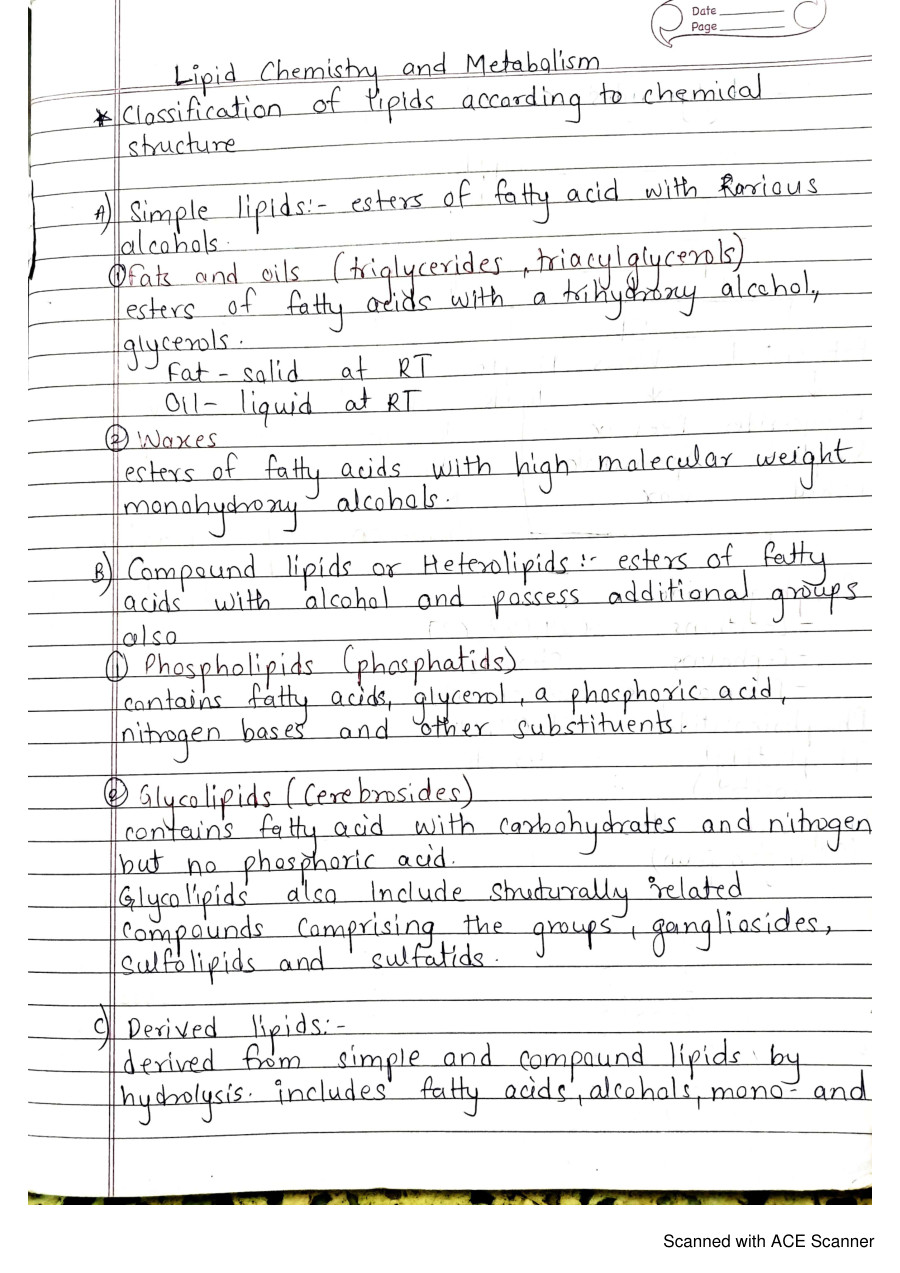 Date
Page
Lipid Chemistry and Metabolism
* Classification of lipids according to chemical
structure
A) Simple lipids:- esters of fatty acid with Rarious
alcohols.
① Fats and oils (triglycerides, triacylglycerols)
esters of fatty acids with a trihydroxy alcohol,
glycerols.
Fat - solid at RT
Oil - liquid at RT
② Waxes
esters of fatty acids with high molecular weight
monohydroxy alcohols.
B) Compound lipids or Heterolipids :- esters of fatty
acids with alcohol and possess additional groups
also
① Phospholipids (phosphatids)
contains fatty acids, glycerol, a phosphoric acid,
nitrogen bases and other substituents.
② Glycolipids (Cerebrosides)
contains fatty acid with carbohydrates and nitrogen
but no phosphoric acid.
Glycolipids also Include struturally related
compounds comprising the groups, gangliosides,
sulfolipids and sulfatids.
C) Derived lipids:-
derived from simple and compound lipids by
hydrolysis. includes fatty acids, alcohols, mono- and
Scanned with ACE Scanner